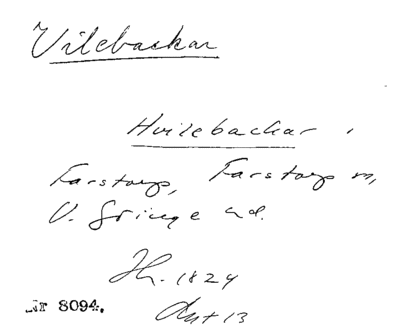 Vilebackar
Hvilebackar i
Farstorp, Farstorp sn,
V. Göinge hd.
1824
Nr 8094.
Akt 13